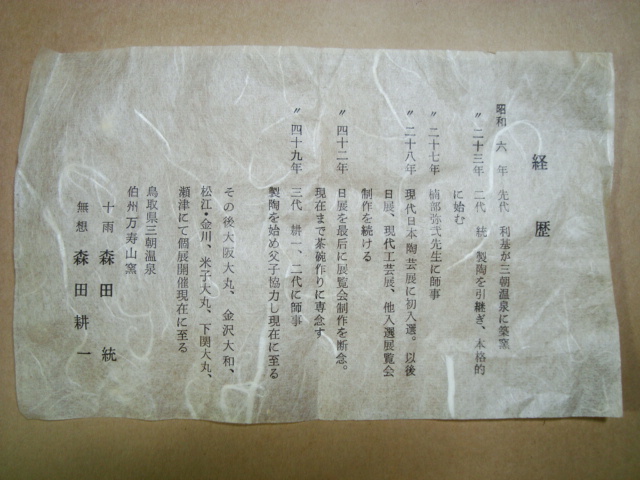 経歴
昭和 六 年 先代 利基が三朝温泉に築窯
〃 二十三年 二代 統 製陶を引継ぎ、本格的
に始む
〃 二十七年 楠部弥弌先生に師事
〃 二十八年 現代日本陶芸展に初入選。以後
日展、現代工芸展、他入選展覧会
制作を続ける
〃 四十二年 日展を最後に展覧会制作を断念。
現在まで茶碗作りに専念す
〃 四十九年 三代 耕一、二代に師事
製陶を始め父子協力し現在に至る
その後大阪大丸、金沢大和、
松江・金川、米子大丸、下関大丸、
瀬津にて個展開催現在に至る
鳥取県三朝温泉
伯州万寿山窯
十雨 森田 統
無想 森田耕一